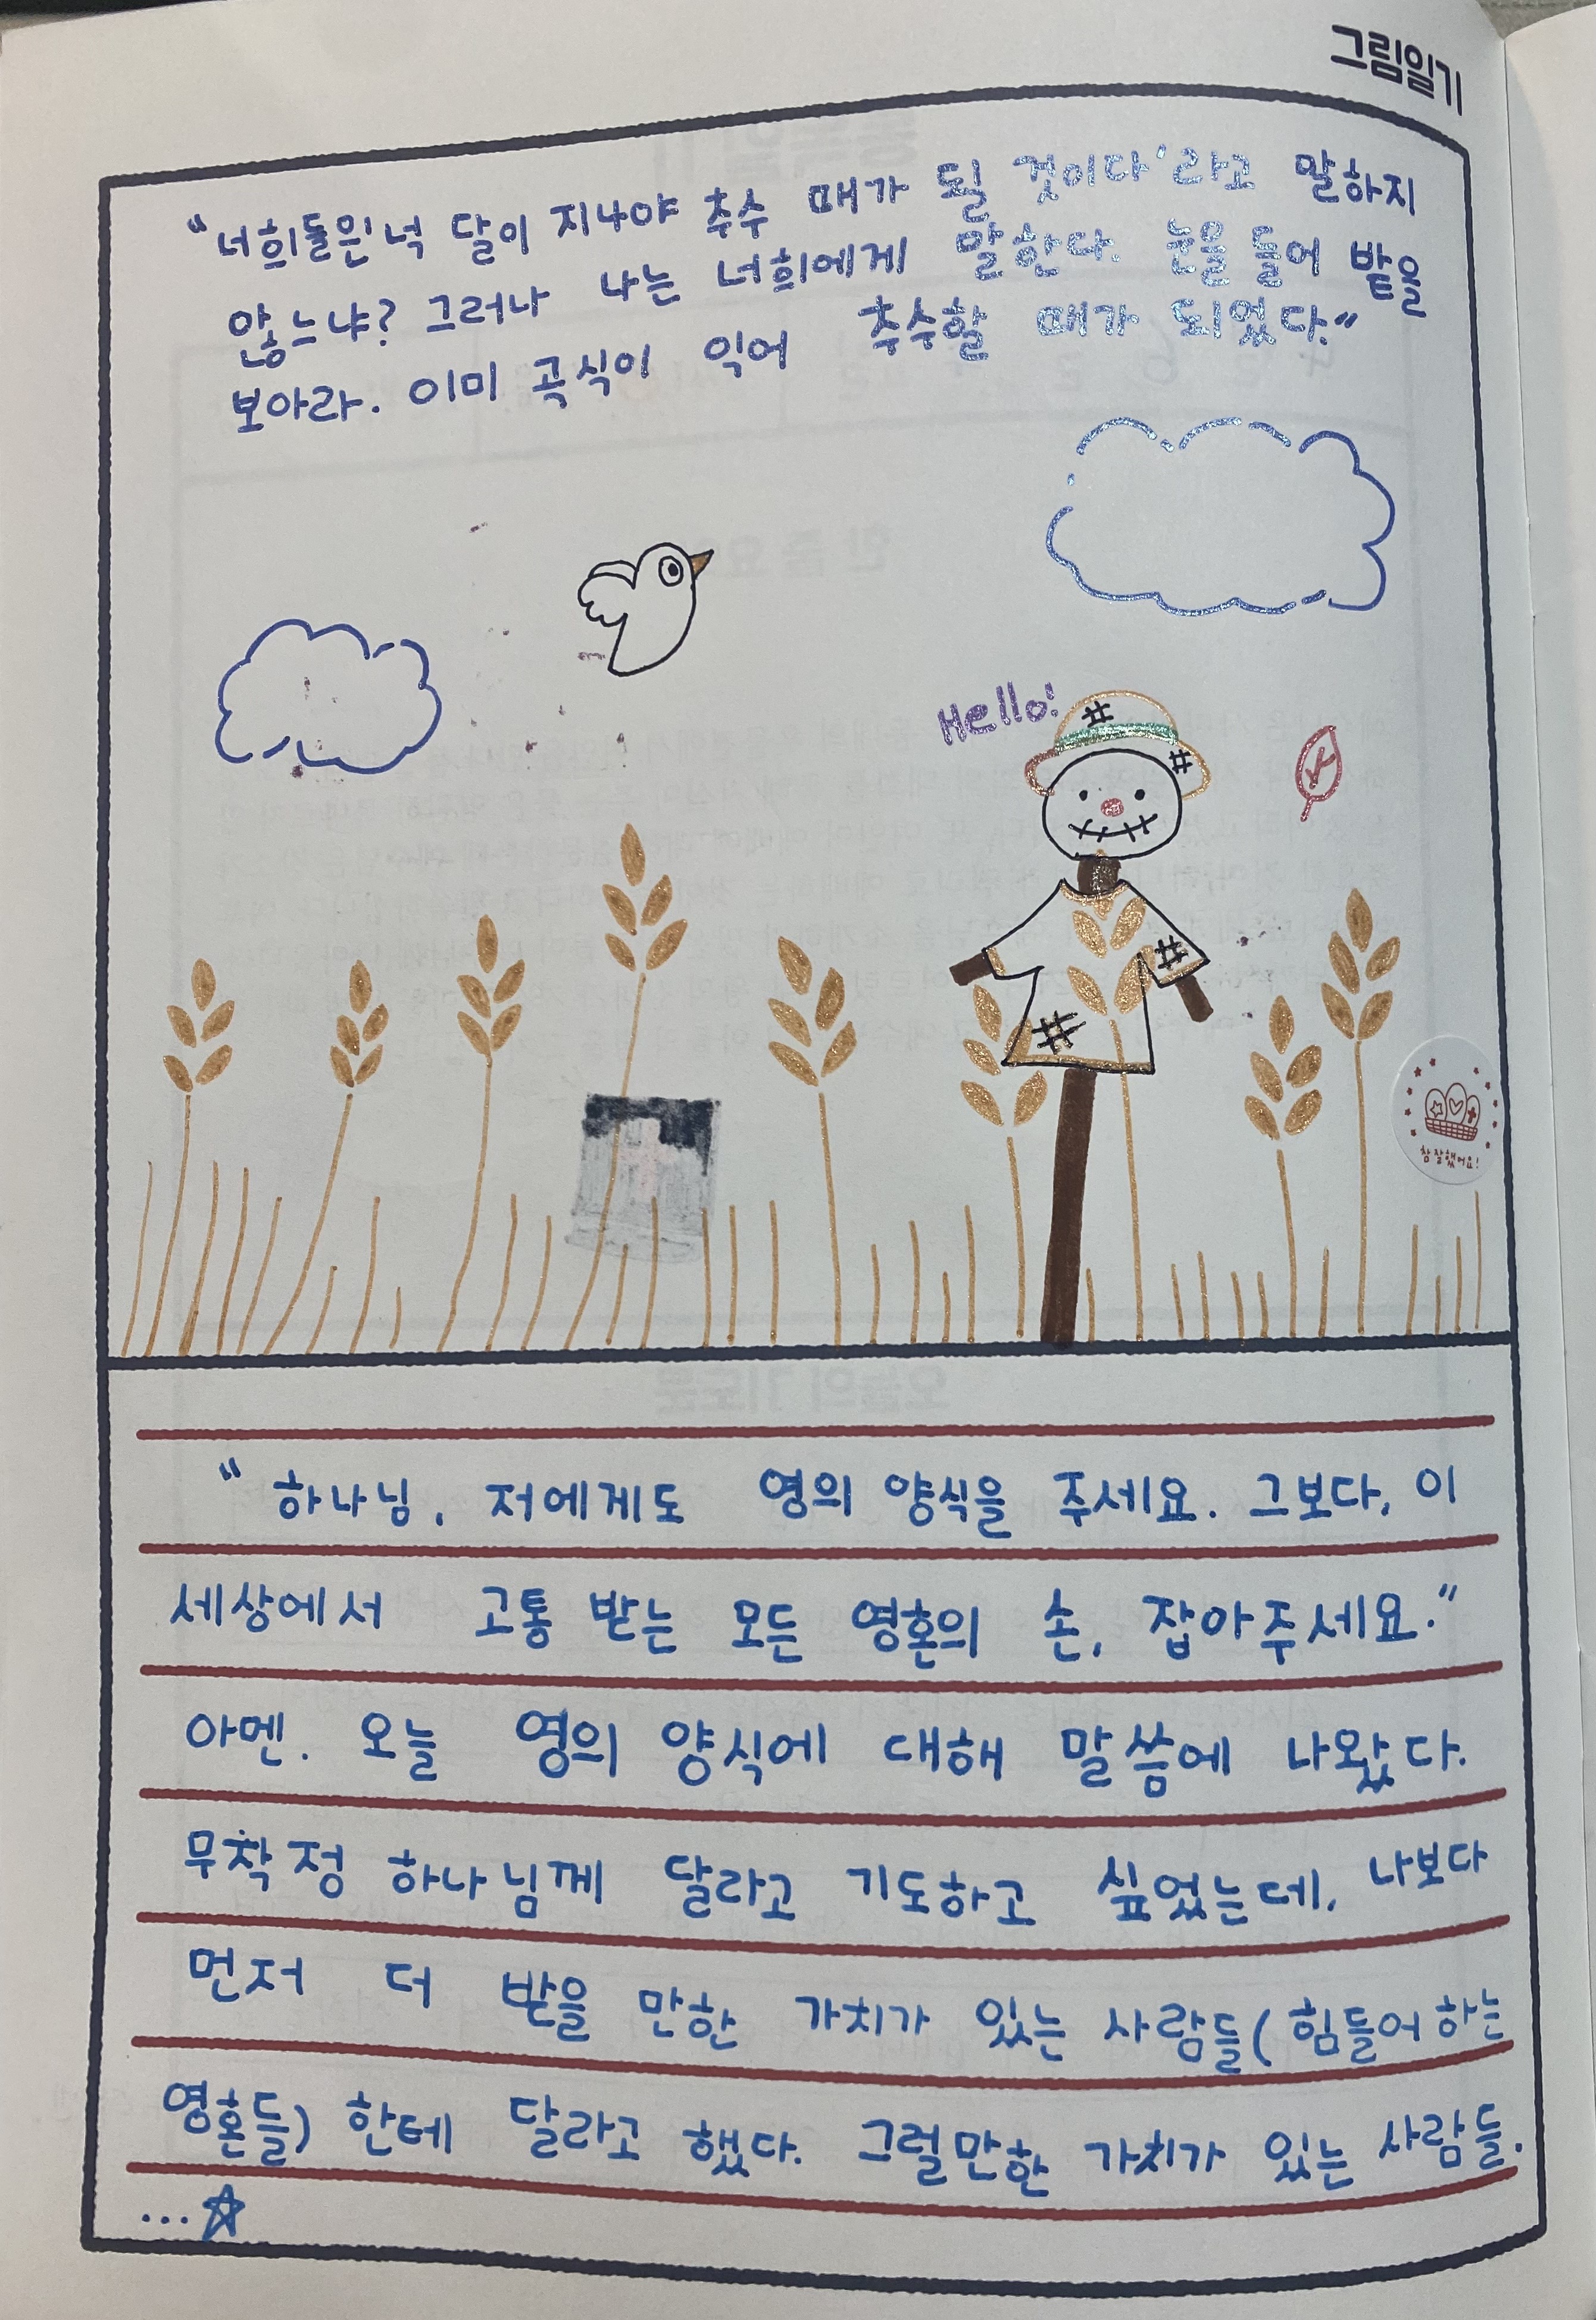 그림일기
"너희들은'넉 달이 지나야 추수 때가 될 것이다'라고 말하지
않느냐? 그러나 나는 너희에게 말한다. 눈을 들어 밭을
보아라. 이미 곡식이 익어 추수할 때가 되었다."
Hello!
참 잘했어요!
"하나님, 저에게도 영의 양식을 주세요. 그보다, 이
세상에서 고통 받는 모든 영혼의 손, 잡아주세요."
아멘. 오늘 영의 양식에 대해 말씀에 나왔다.
무작정 하나님께 달라고 기도하고 싶었는데, 나보다
먼저 더 받을 만한 가치가 있는 사람들(힘들어하는
영혼들) 한테 달라고 했다. 그럴만한 가치가 있는 사람들.
...☆